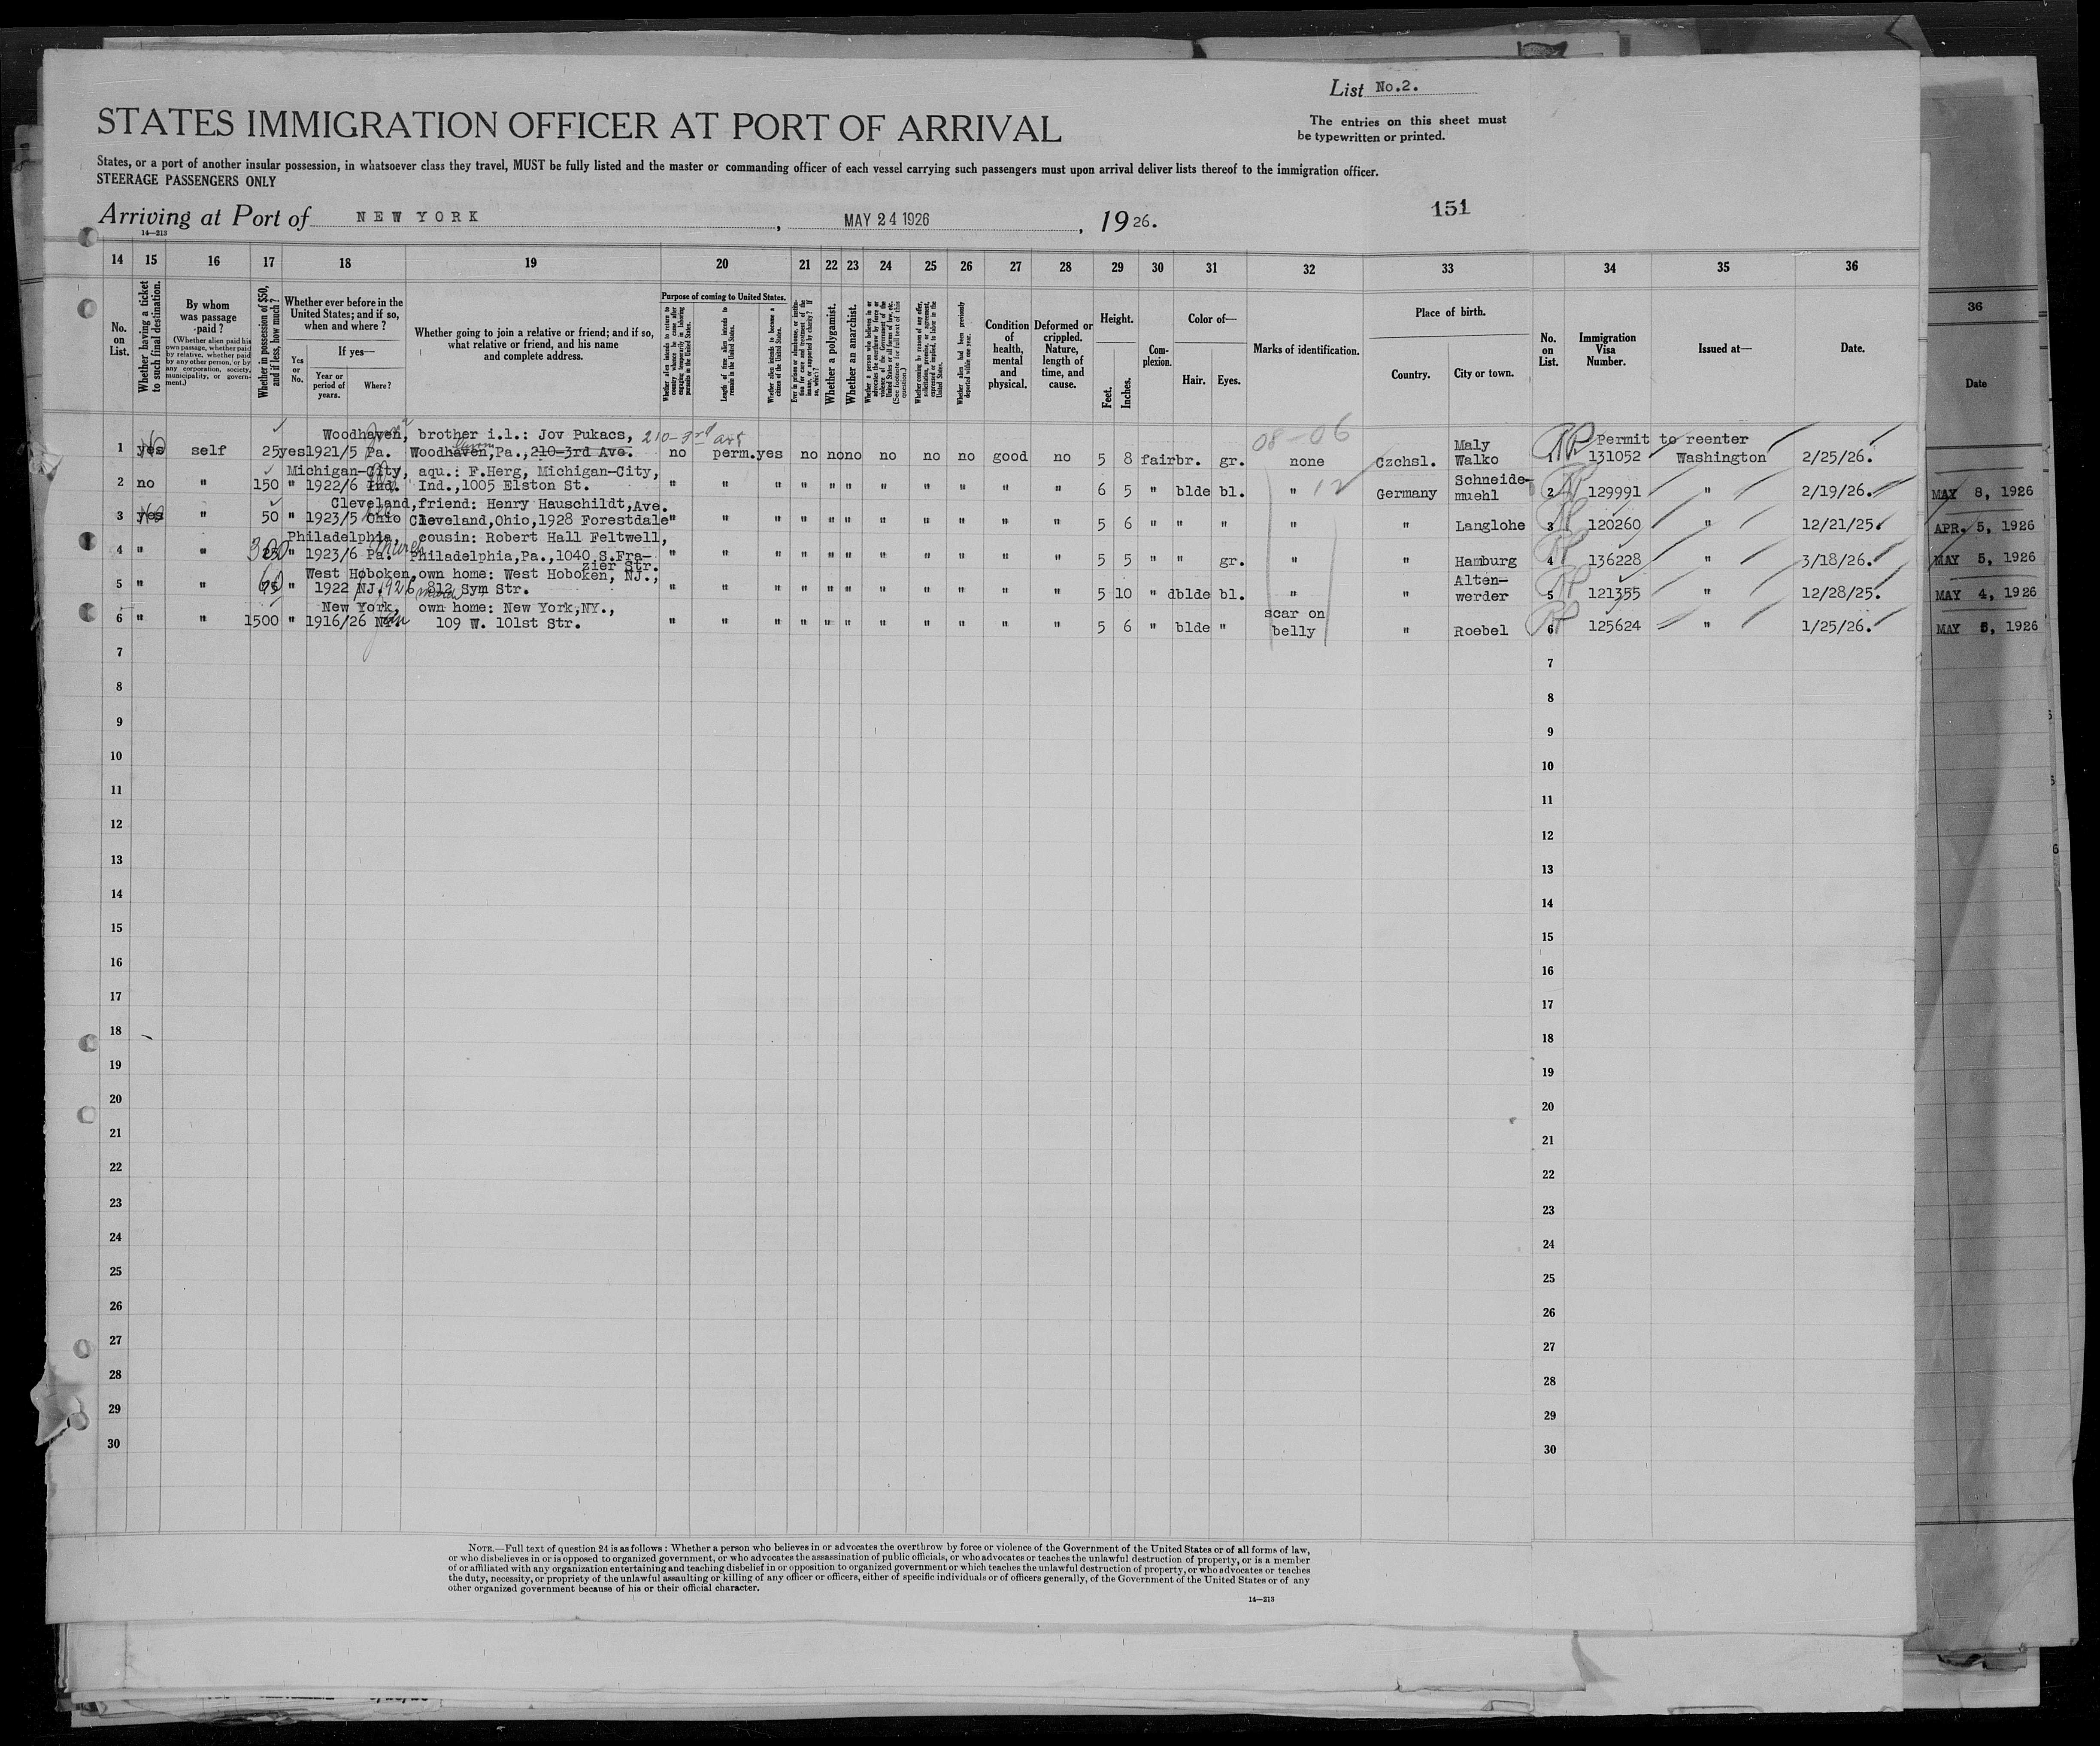 List No.2.
STATES IMMIGRATION OFFICER AT PORT OF ARRIVAL
The entries on this sheet must
be typewritten or printed.
States, or a port of another insular possession, in whatsoever class they travel, MUST be fully listed and the master or commanding officer of each vessel carrying such passengers must upon arrival deliver lists thereof to the immigration officer.
STEERAGE PASSENGERS ONLY
Arriving at Port of NEW YORK, MAY 24 1926, 1926.
151
14—213
14 15 16 17 18 19 20 21 22 23 24 25 26 27 28 29 30 31 32 33 34 35 36
No. on List.
Whether having a ticket to such final destination.
By whom was passage paid?
(Whether alien paid his own passage, whether paid by relative, whether paid by any other person, or by any corporation, society, municipality, or government.)
Whether in possession of $50, and if less, how much?
Whether ever before in the United States; and if so, when and where?
Yes or No.
If yes—
Year or period of years.
Where?
Whether going to join a relative or friend; and if so, what relative or friend, and his name and complete address.
Purpose of coming to United States.
Whether alien intends to return to country whence he came after engaging temporarily in laboring pursuits in the United States.
Length of time alien intends to remain in the United States.
Whether alien intends to become a citizen of the United States.
Ever in prison or almshouse, or institution for care and treatment of the insane, or supported by charity? If so, which?
Whether a polygamist.
Whether an anarchist.
Whether a person who believes in or advocates the overthrow by force or violence of the Government of the United States or all forms of law, etc. (See footnote for full text of this question.)
Whether coming by reason of any offer, solicitation, promise, or agreement, expressed or implied, to labor in the United States.
Whether alien had been previously deported within one year.
Condition of health, mental and physical.
Deformed or crippled. Nature, length of time, and cause.
Height.
Feet.
Inches.
Complexion.
Color of—
Hair.
Eyes.
Marks of identification.
Place of birth.
Country.
City or town.
No. on List.
Immigration Visa Number.
Issued at—
Date.
36
Date
08-06
Woodhaven, brother i.l.: Jov Pukacs, 210-3rd ave Maly Permit to reenter
1 yes No self 25 yes 1921/5 Pa. Woodhaven,Pa.,210-3rd Ave. no perm. yes no no no no no no good no 5 8 fair br. gr. none Czchsl. Walko 1 131052 Washington 2/25/26.
Michigan-City, aqu.: F.Herg, Michigan-City, Schneide-
2 no " 150 " 1922/6 Ind. Ind.,1005 Elston St. " " " " " " " " " " " 6 5 " blde bl. " 12 Germany muehl 2 129991 " 2/19/26.
Cleveland, friend: Henry Hauschildt, Ave.
3 yes No " 50 " 1923/5 Ohio Cleveland,Ohio,1928 Forestdale " " " " " " " " " " " 5 6 " " " " " Langlohe 3 120260 " 12/21/25.
Philadelphia, cousin: Robert Hall Feltwell,
4 " " 25 300 " 1923/6 Pa. Philadelphia,Pa.,1040 S.Fra- " " " " " " " " " " " 5 5 " " gr. " " Hamburg 4 136228 " 3/18/26.
zier Str.
West Hoboken, own home: West Hoboken, NJ., Alten-
5 " " 75 60 " 1922 NJ. 1926 812 Sym Str. " " " " " " " " " " " 5 10 " dblde bl. " " werder 5 121355 " 12/28/25.
New York, own home: New York,NY., scar on
6 " " 1500 " 1916/26 NY. 109 W. 101st Str. " " " " " " " " " " " 5 6 " blde " belly " Roebel 6 125624 " 1/25/26.
MAY 8, 1926
APR. 5, 1926
MAY 5, 1926
MAY 4, 1926
MAY 5, 1926
7 7
8 8
9 9
10 10
11 11
12 12
13 13
14 14
15 15
16 16
17 17
18 18
19 19
20 20
21 21
22 22
23 23
24 24
25 25
26 26
27 27
28 28
29 29
30 30
NOTE.—Full text of question 24 is as follows: Whether a person who believes in or advocates the overthrow by force or violence of the Government of the United States or of all forms of law,
or who disbelieves in or is opposed to organized government, or who advocates the assassination of public officials, or who advocates or teaches the unlawful destruction of property, or is a member
of or affiliated with any organization entertaining and teaching disbelief in or opposition to organized government or which teaches the unlawful destruction of property, or who advocates or teaches
the duty, necessity, or propriety of the unlawful assaulting or killing of any officer or officers, either of specific individuals or of officers generally, of the Government of the United States or of any
other organized government because of his or their official character.
14—213